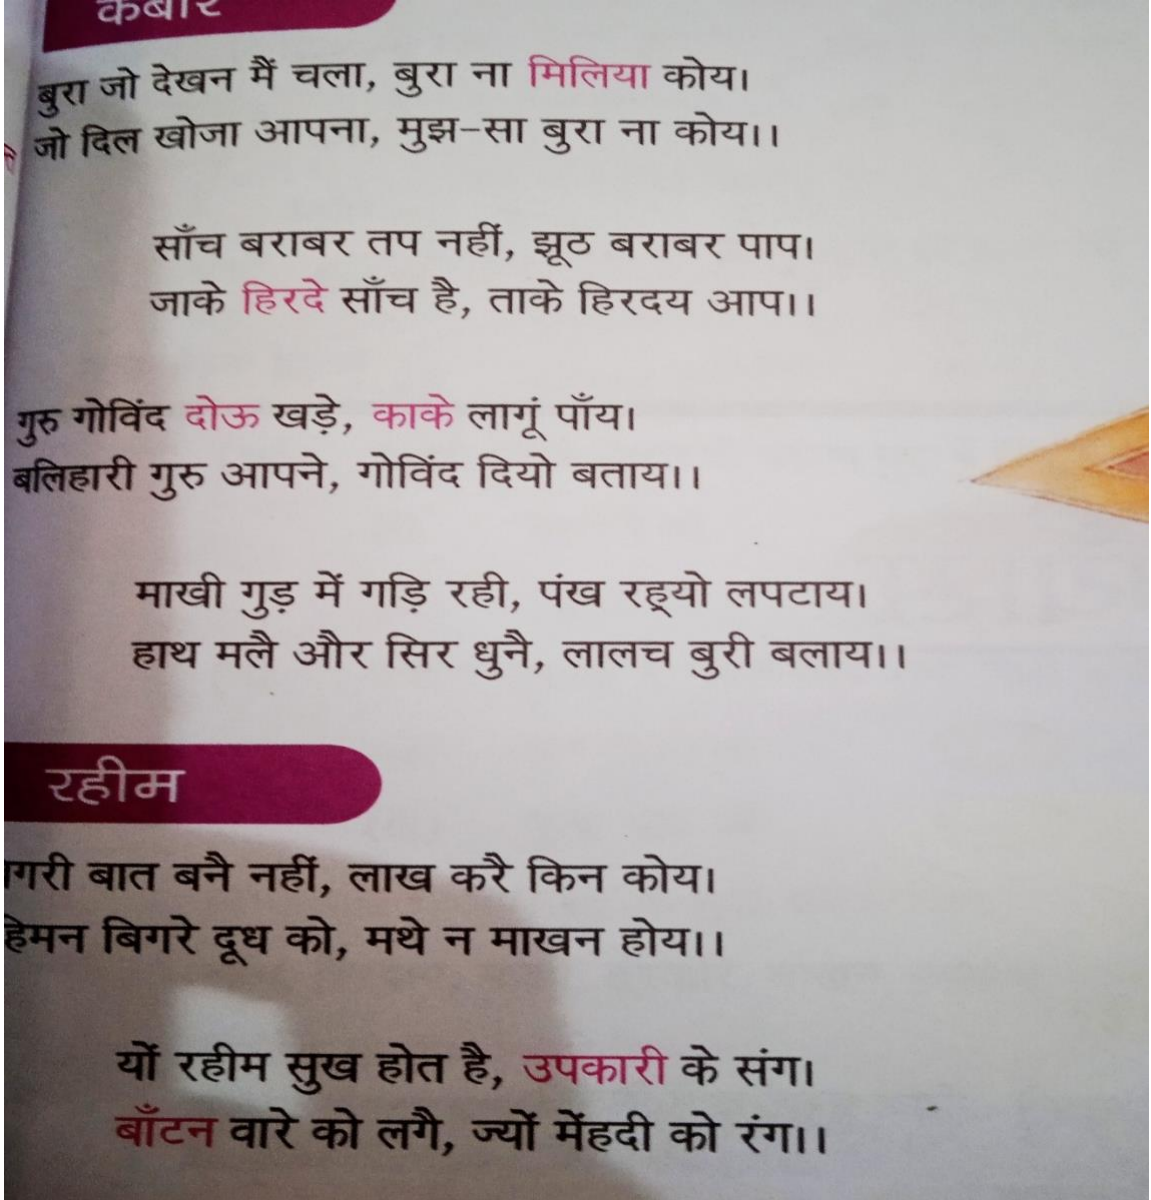 कबीर
बुरा जो देखन मैं चला, बुरा ना मिलिया कोय।
जो दिल खोजा आपना, मुझ-सा बुरा ना कोय।।
साँच बराबर तप नहीं, झूठ बराबर पाप।
जाके हिरदे साँच है, ताके हिरदय आप।।
गुरु गोविंद दोऊ खड़े, काके लागूं पाँय।
बलिहारी गुरु आपने, गोविंद दियो बताय।।
माखी गुड़ में गड़ि रही, पंख रह्यो लपटाय।
हाथ मलै और सिर धुनै, लालच बुरी बलाय।।
रहीम
बात बनै नहीं, लाख करै किन कोय।
बिगरे दूध को, मथे न माखन होय।।
यों रहीम सुख होत है, उपकारी के संग।
बाँटन वारे को लगै, ज्यों मेंहदी को रंग।।